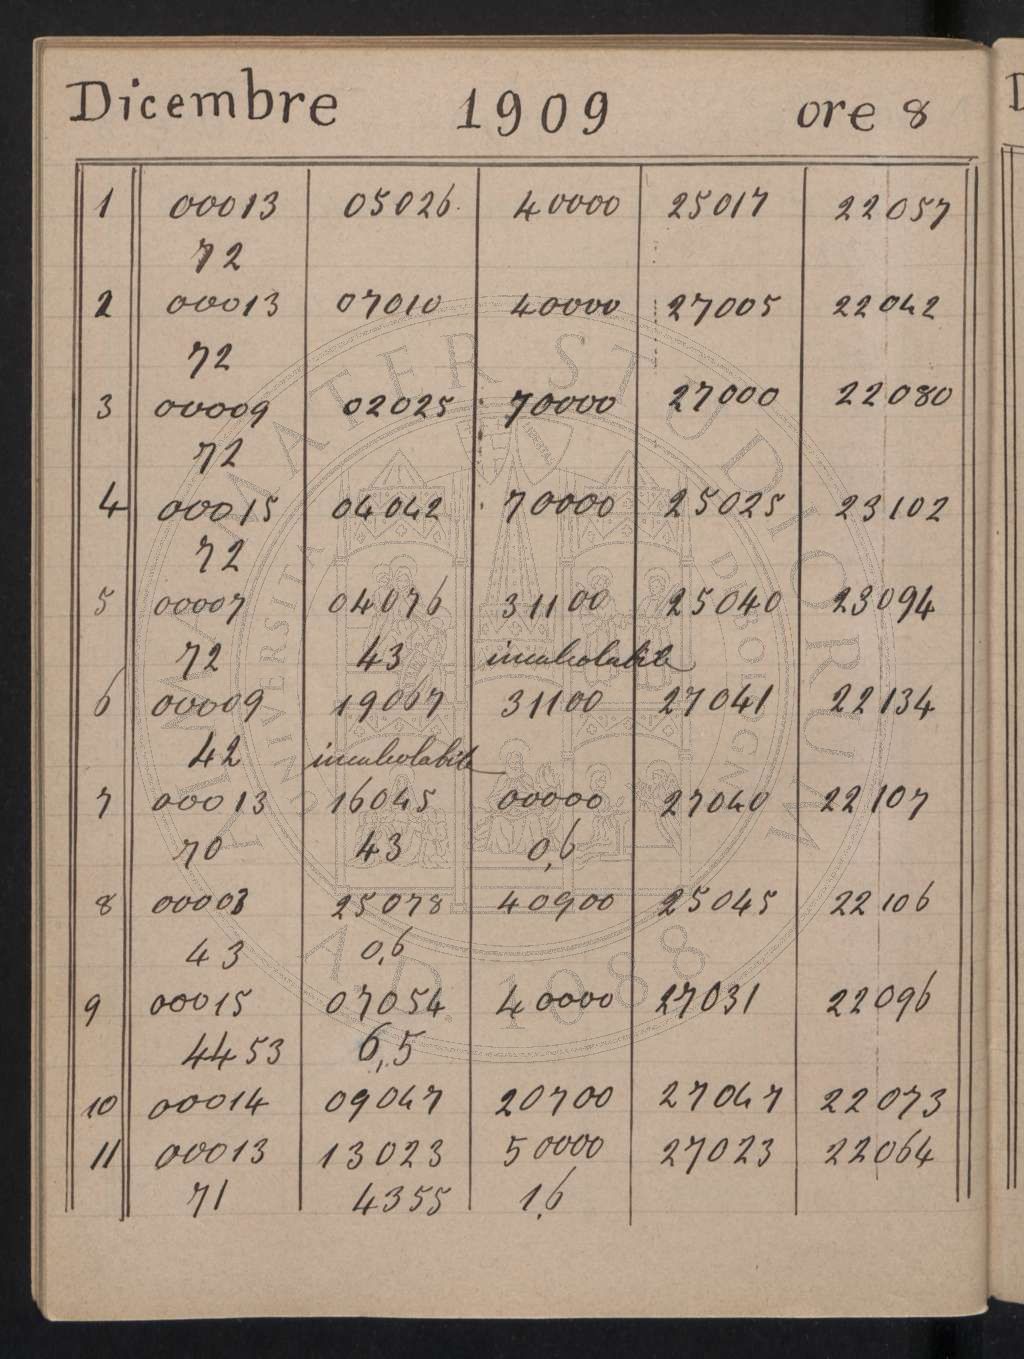 Dicembre 1909 ore 8
1 00013 05026 40000 25017 22057
72
2 00013 07010 40000 27005 22042
72
3 00009 02025 70000 27000 22080
72
4 00015 04042 70000 25025 23102
72
5 00007 04076 31100 25040 23094
72 43 incalcolabile
6 00009 19067 31100 27041 22134
42 incalcolabile
7 00013 16045 00000 27040 22107
70 43 0,6
8 00003 25078 40900 25045 22106
43 0,6
9 00015 07054 40000 27031 22096
4453 6,5
10 00014 09047 20700 27047 22073
11 00013 13023 50000 27023 22064
71 4355 1,6
ALMA MATER STUDIORUM
A.D. 1088